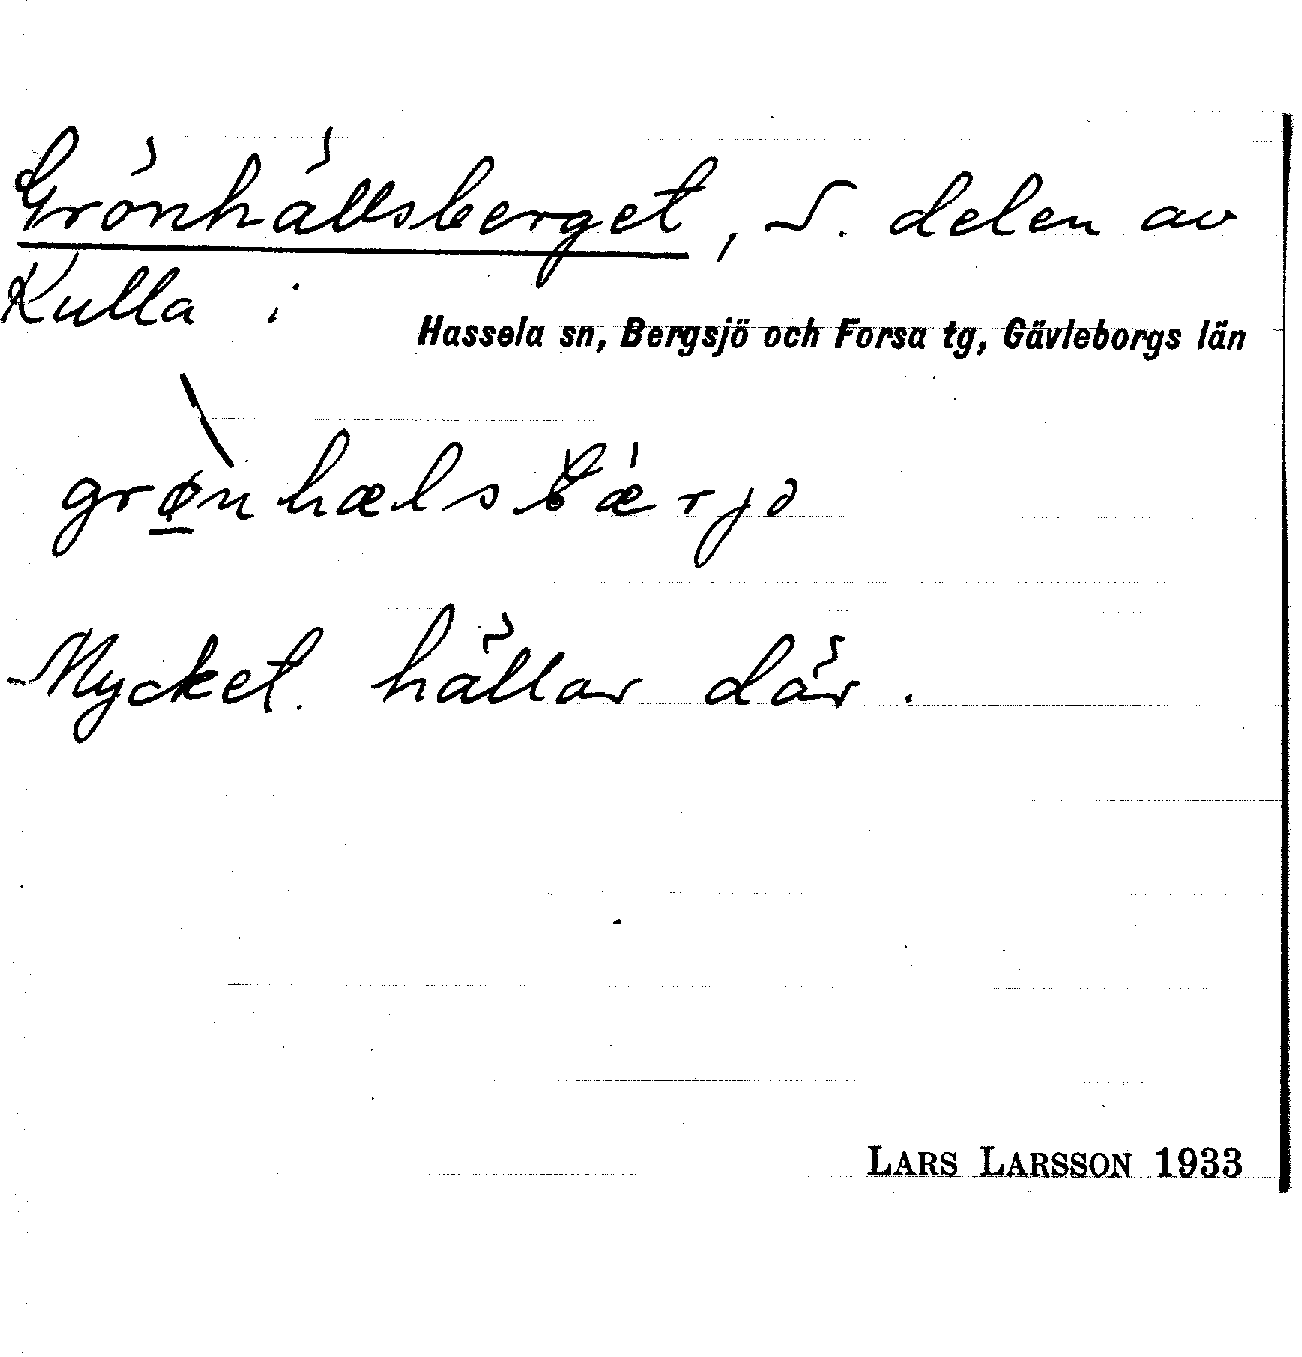 Grönhällsberget, S. delen av
Kulla i
Hassela sn, Bergsjö och Forsa tg, Gävleborgs län
grø̀nhælsbǽrjə
Mycket hällar där.
LARS LARSSON 1933